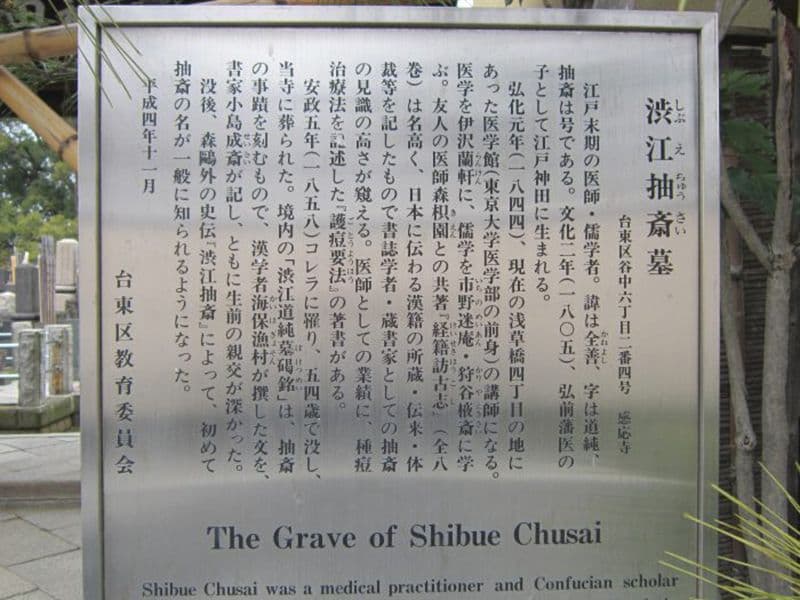 渋江抽斎墓
台東区谷中六丁目二番四号　感応寺
江戸末期の医師・儒学者。諱は全善、字は道純、
抽斎は号である。文化二年(一八〇五)、弘前藩医の
子として江戸神田に生まれる。
弘化元年(一八四四)、現在の浅草橋四丁目の地に
あった医学館(東京大学医学部の前身)の講師になる。
医学を伊沢蘭軒に、儒学を市野迷庵・狩谷棭斎に学
ぶ。友人の医師森枳園との共著『経籍訪古志』(全八
巻)は名高く、日本に伝わる漢籍の所蔵・伝来・体
裁等を記したもので書誌学者・蔵書家としての抽斎
の見識の高さが窺える。医師としての業績に、種痘
治療法を記述した『護痘要法』の著書がある。
安政五年(一八五八)コレラに罹り、五四歳で没し、
当寺に葬られた。境内の「渋江道純墓碣銘」は、抽斎
の事蹟を刻むもので、漢学者海保漁村が撰した文を、
書家小島成斎が記し、ともに生前の親交が深かった。
没後、森鷗外の史伝『渋江抽斎』によって、初めて
抽斎の名が一般に知られるようになった。
平成四年十一月
台東区教育委員会
The Grave of Shibue Chusai
Shibue Chusai was a medical practitioner and Confucian scholar